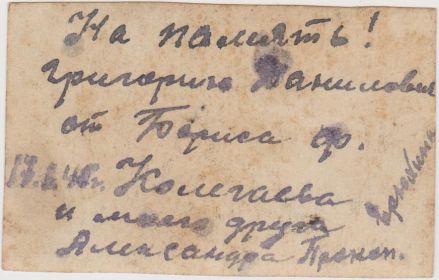 На память!
Григорию Данилович
от Бориса ф.
17. 45г. Колегаева
и моего друга
Александра Прокоп.